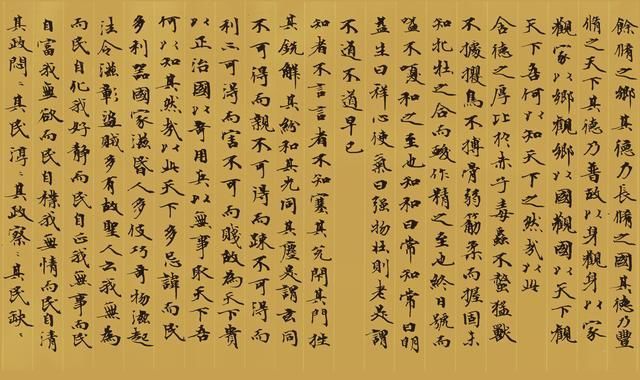 餘脩之鄉其德乃長脩之國其德乃豐
脩之天下其德乃普故以身觀身以家
觀家以鄉觀鄉以國觀國以天下觀
天下吾何以知天下之然哉以此
含德之厚比於赤子毒蟲不螫猛獸
不據攫鳥不搏骨弱筋柔而握固未
知牝牡之合而酸作精之至也終日號而
嗌不嗄和之至也知和曰常知常曰明
益生曰祥心使氣曰强物壯則老是謂
不道不道早已
知者不言言者不知塞其兊閉其門挫
其銳解其紛和其光同其塵是謂玄同
不可得而親不可得而踈不可得而
利不可得而害不可而賤故為天下貴
以正治國以奇用兵以無事取天下吾
何以知其然哉以此天下多忌諱而民
多利器國家滋昏人多伎巧奇物滋起
法令滋彰盜賊多有故聖人云我無為
而民自化我好靜而民自正我無事而民
自富我無欲而民自樸我無情而民自清
其政悶〻其民淳〻其政察〻其民缺〻